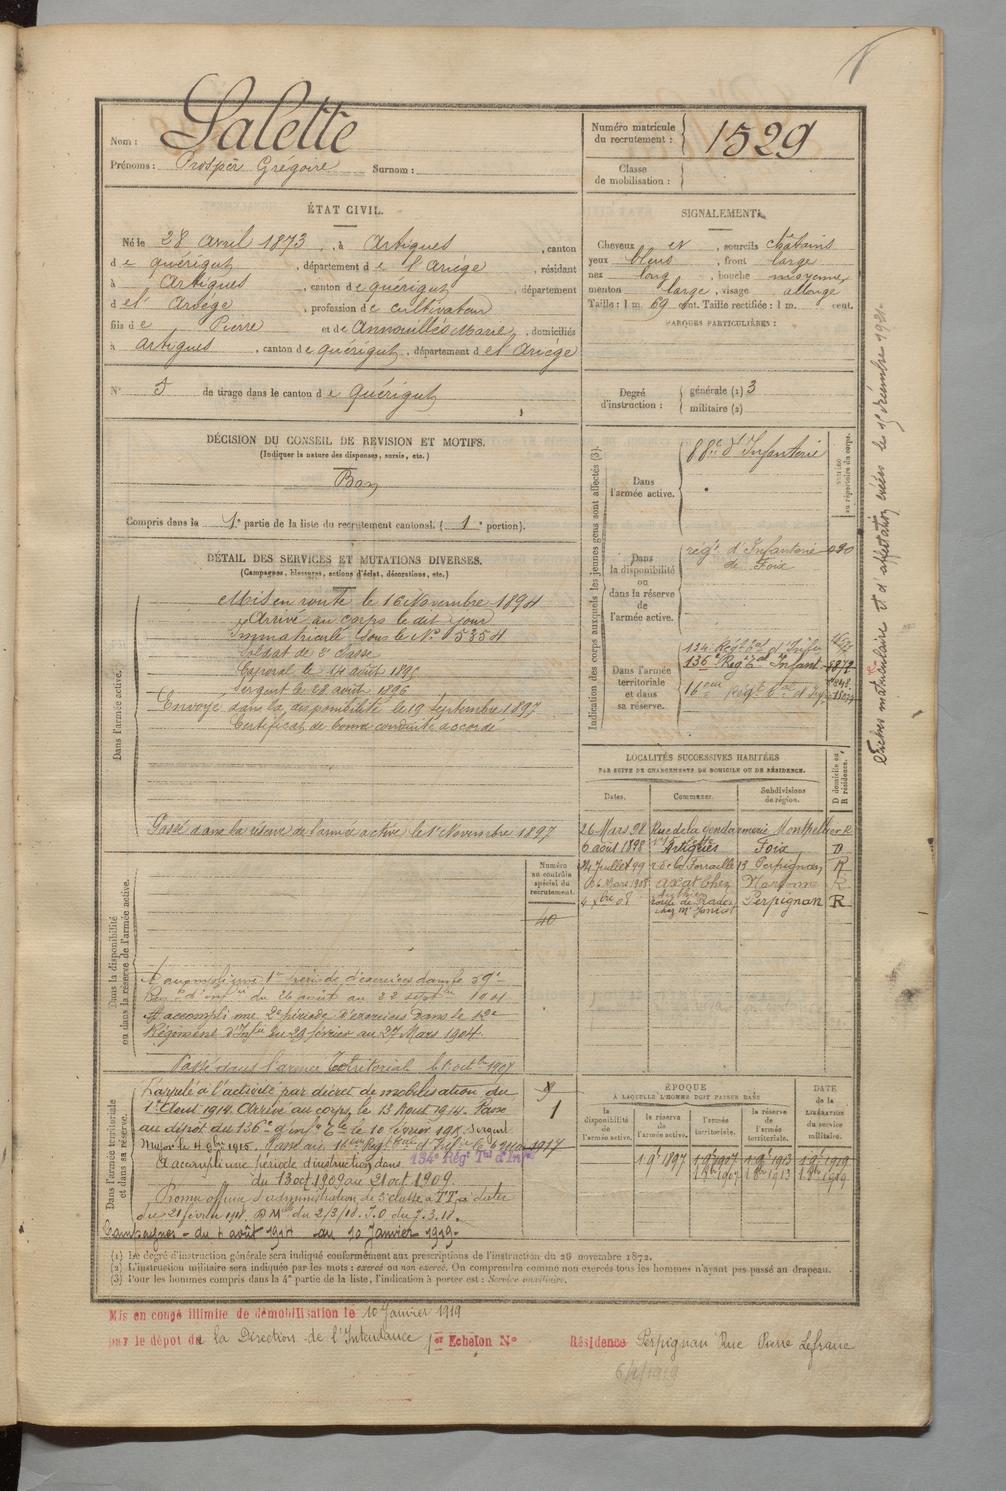 Nom : Salette
Prénoms : Prosper Grégoire Surnom :
Numéro matricule du recrutement : 1529
Classe de mobilisation :
ÉTAT CIVIL.
Né le 28 avril 1873, à Artigues, canton
de quérigut, département de l'Ariége, résidant
à Artigues, canton de quérigut, département
de l'Ariège, profession de cultivateur
fils de Pierre et de Annouillés Marie, domiciliés
à Artigues, canton de quérigut, département de l'Ariége
N° 5 de tirage dans le canton de Quérigut
SIGNALEMENT.
Cheveux et, sourcils châtains
yeux bleus, front large
nez long, bouche moyenne
menton large, visage allongé
Taille : 1 m. 69 cent. Taille rectifiée : 1 m. cent.
MARQUES PARTICULIÈRES :
Degré d'instruction : générale (1) 3
militaire (2)
DÉCISION DU CONSEIL DE REVISION ET MOTIFS.
(Indiquer la nature des dispenses, sursis, etc.)
Bon
Compris dans la 1e partie de la liste du recrutement cantonal. (1e portion).
DÉTAIL DES SERVICES ET MUTATIONS DIVERSES.
(Campagnes, blessures, actions d'éclat, décorations, etc.)
Dans l'armée active.
Mis en route le 16 Novembre 1894
Arrivé au corps le dit jour
Immatriculé sous le N° 5354
Soldat de 2e classe
Caporal le 14 août 1895
Sergent le 28 août 1896
Envoyé dans la disponibilité le 19 septembre 1897
Certificat de bonne conduite accordé
Passé dans la réserve de l'armée active le 1er Novembre 1897
Dans la disponibilité ou dans la réserve de l'armée active.
Numéro au contrôle spécial du recrutement.
40
A accompli une 1re période d'exercices dans le 59e
Régt d'Infie du 26 août au 22 septre 1901
A accompli une 2e période d'exercices dans le 12e
Régiment d'Infie du 29 février au 27 Mars 1904
Passé dans l'armée Territorial le 1er octbre 1907
Dans l'armée territoriale et dans sa réserve.
1
Rappelé à l'activité par décret de mobilisation du
1er Aout 1914. Arrivé au corps, le 13 Aout 1914. Passé
au dépôt du 136e d'Infie Tle le 10 février 1915. Sergent
Major le 4 9bre 1915. Passé au 16eme Régt Tal d'Infie le 6 Mai 1917
A accompli une période d'instruction dans 134e Régt Tal d'Infie
du 13 oct 1909 au 21 oct 1909.
Promu officier d'administration de 3e classe à TT à dater
du 21 février 1918. D Mlle du 2/3/18. J.O du 7.3.18.
Campagnes - du 4 août 1914 au 10 Janvier 1919.
Indication des corps auxquels les jeunes gens sont affectés (3).
NUMÉRO au répertoire du corps.
Dans l'armée active. 88e d'Infanterie
Dans la disponibilité ou dans la réserve de l'armée active.
régt d'Infanterie de Foix 030
Dans l'armée territoriale et dans sa réserve.
134 Régt Tal d'Infie
136e Régt Tal Infant 8872
16eme Régt Tal d'Infie
LOCALITÉS SUCCESSIVES HABITÉES
PAR SUITE DE CHANGEMENTS DE DOMICILE OU DE RÉSIDENCE.
Dates. Communes. Subdivisions de région. D domicile ou R résidence.
26 Mars 98 Rue de la gendarmerie Montpellier R
6 août 1898 Artigues Foix D
24 Juillet 99 Perpignan R
6 Mars 1908 Axat chez Narbonne R
4 Xbre 08 route de Prades Perpignan R
ÉPOQUE
À LAQUELLE L'HOMME DOIT PASSER DANS
la disponibilité de l'armée active. la réserve de l'armée active. l'armée territoriale. la réserve de l'armée territoriale.
DATE de la LIBÉRATION du service militaire.
1 9e 1897 1 9e 1907 1 9e 1913 1 9e 1919
1 8bre 1907 1 8bre 1913 1 8bre 1919
(1) Le degré d'instruction générale sera indiqué conformément aux prescriptions de l'instruction du 26 novembre 1872.
(2) L'instruction militaire sera indiquée par les mots : exercé ou non exercé. On comprendra comme non exercés tous les hommes n'ayant pas passé au drapeau.
(3) Pour les hommes compris dans la 4e partie de la liste, l'indication à porter est : Service auxiliaire.
Mis en congé illimité de démobilisation le 10 Janvier 1919
par le dépôt de la Direction de l'Intendance 1er Echelon N° Résidence Perpignan Rue Pierre Lefranc
6/4/1919
Fiches matriculaire et d'affectation créées le 15 décembre 1921